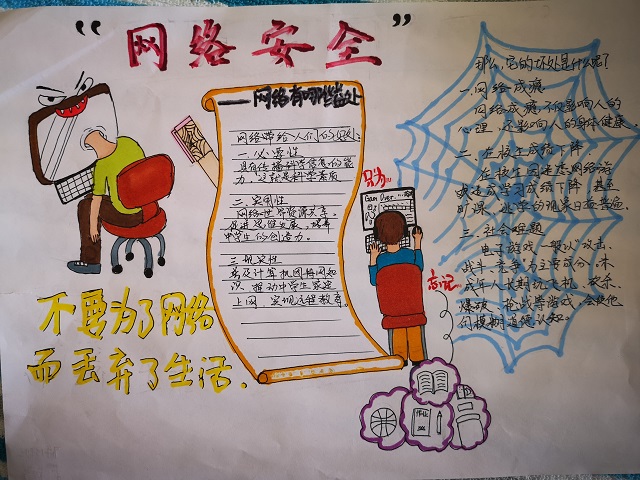 “网络安全”
——网络有哪些益处
网络带给人们的好处:
一.必要性
具有传播科学信息的能
力,这就是科学素质
二.实用性
网络世界资源共享,
促进个性发展,培养
中学生的创造力。
三.现实性
普及计算机国际网知
识,推动中学生家庭
上网,实现远程教育。
只为
Gam Over
忘记
作业
不要为了网络
而丢弃了生活.
那么,它的坏处是什么呢?
一.网络成瘾
网络成瘾不仅影响人的
心理,还影响人的身体健康.
二.在校生成绩下降
在校生因迷恋网络游
戏造成学习成绩下降,甚至
旷课、逃学的现象日益普遍.
三.社会难题
电子游戏一般以“攻击、
战斗、竞争”为主要成分,未
成年人长期玩飞机、
爆破、枪战等游戏,会使他
们模糊道德认知。